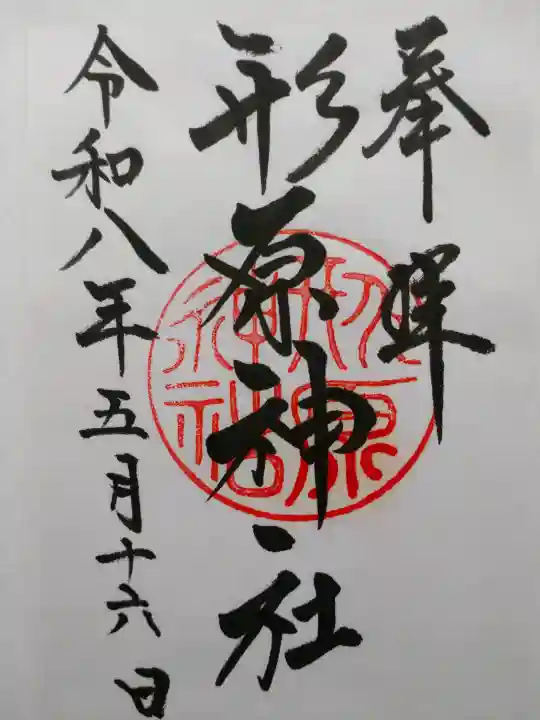 奉拝
形原神社
令和八年五月十六日
形原
神社